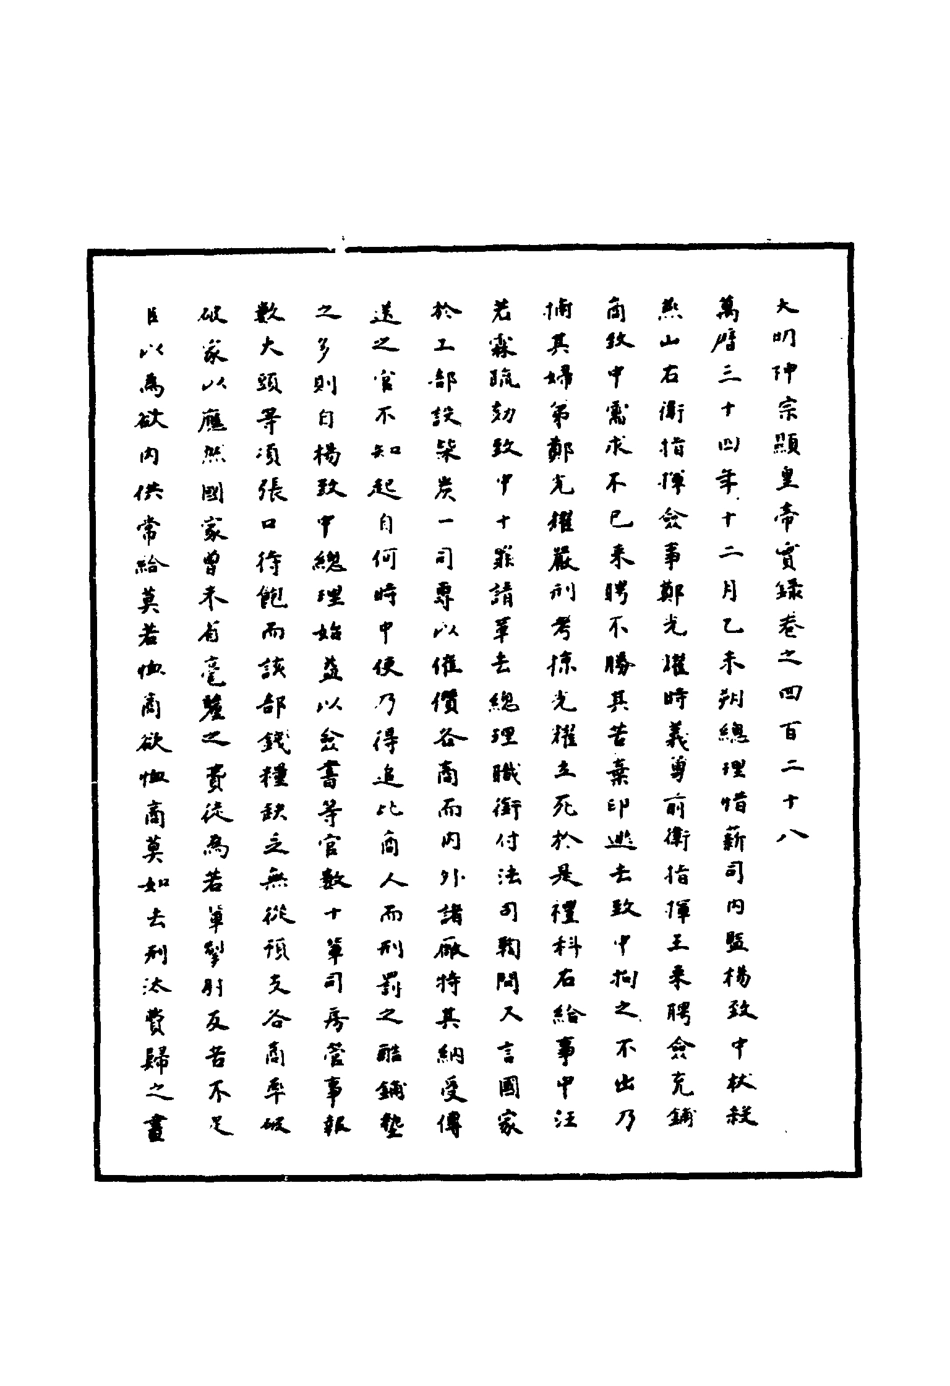 大明神宗顯皇帝實錄卷之四百二十八
萬曆三十四年十二月乙未朔總理惜薪司內監楊致中杖殺
燕山右衛指揮僉事鄭光擢時義勇前衛指揮王來聘僉充鋪
商致中需求不已來聘不勝其苦棄印逃去致中拘之不出乃
捕其婦弟鄭光擢嚴刑考掠光擢立死於是禮科右給事中汪
若霖疏劾致中十罪請革去總理職銜付法司鞫問又言國家
於工部設柴炭一司專以催儹各商而內外諸廠特其納受傳
送之官不知起自何時中使乃得追比商人而刑罰之酷鋪墊
之多則自楊致中總理始益以僉書等官數十輩司房管事報
數大頭等項張口待飽而該部錢糧缺乏無從預支各商率破
破家以應然國家曾未省毫釐之費徒為若輩掣肘反苦不足
臣以為欲內供常給莫若恤商欲恤商莫如去刑汰費歸之畫